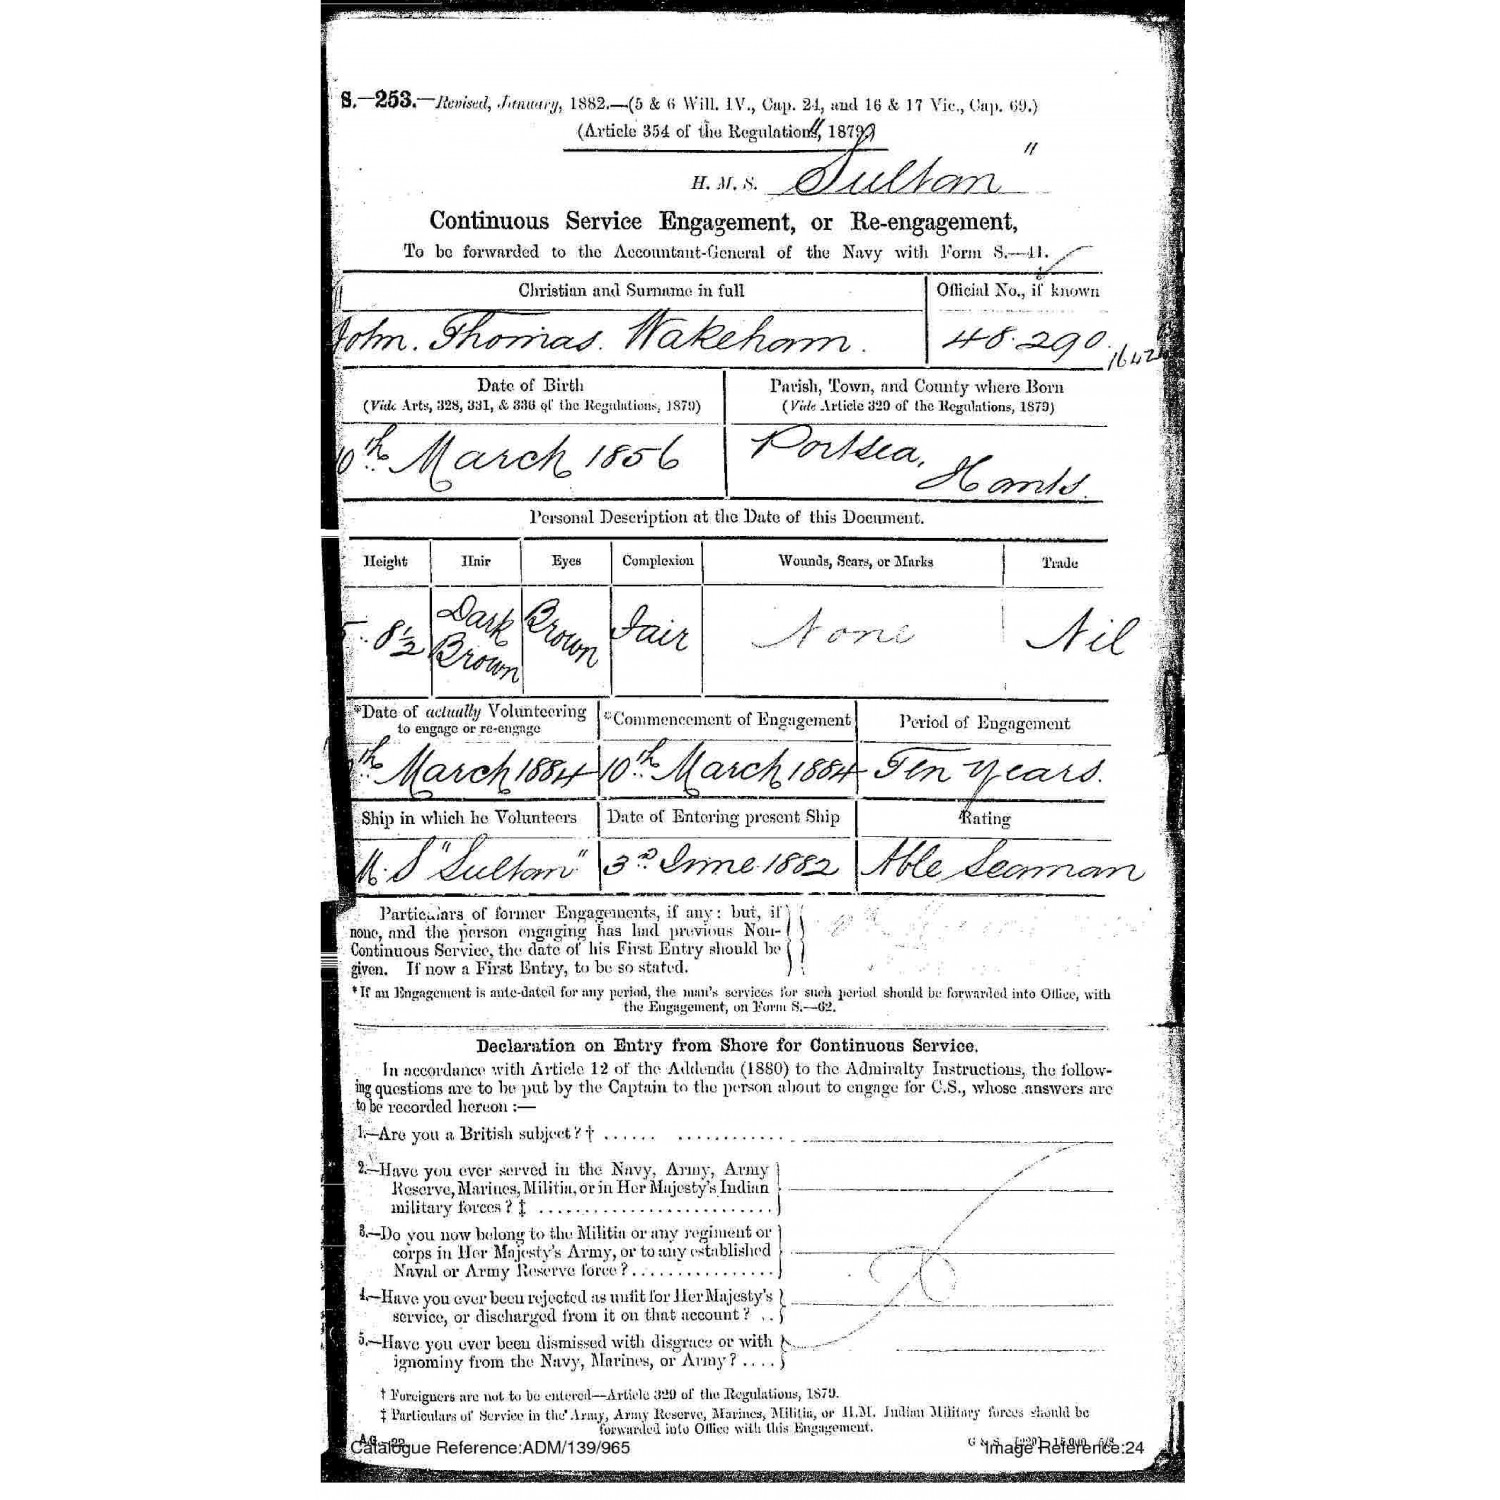 S.—253.—Revised, January, 1882.—(5 & 6 Will. IV., Cap. 24, and 16 & 17 Vic., Cap. 69.)
(Article 354 of the Regulations, 1879)
H. M. S. "Sultan"
Continuous Service Engagement, or Re-engagement,
To be forwarded to the Accountant-General of the Navy with Form S.—41.
Christian and Surname in full
Official No., if known
John. Thomas. Wakeham.
48.290.
Date of Birth
Parish, Town, and County where Born
(Vide Arts, 328, 331, & 336 of the Regulations, 1879)
(Vide Article 329 of the Regulations, 1879)
10th March 1856
Portsea,
Hants.
Personal Description at the Date of this Document.
Height Hair Eyes Complexion Wounds, Scars, or Marks Trade
5.. 8½ Dark Brown Brown Fair None Nil
*Date of actually Volunteering
to engage or re-engage
*Commencement of Engagement
Period of Engagement
March 1884 10th March 1884 Ten years.
Ship in which he Volunteers Date of Entering present Ship Rating
M.S "Sultan" 3rd June 1882 Able Seaman
Particulars of former Engagements, if any: but, if
none, and the person engaging has had previous Non-
Continuous Service, the date of his First Entry should be
given. If now a First Entry, to be so stated.
*If an Engagement is ante-dated for any period, the man's services for such period should be forwarded into Office, with
the Engagement, on Form S.—62.
Declaration on Entry from Shore for Continuous Service.
In accordance with Article 12 of the Addenda (1880) to the Admiralty Instructions, the follow-
ing questions are to be put by the Captain to the person about to engage for C.S., whose answers are
to be recorded hereon :—
1.—Are you a British subject? † ...... ............
2.—Have you ever served in the Navy, Army, Army
Reserve, Marines, Militia, or in Her Majesty's Indian
military forces? ‡ ..........................
3.—Do you now belong to the Militia or any regiment or
corps in Her Majesty's Army, or to any established
Naval or Army Reserve force?................
4.—Have you ever been rejected as unfit for Her Majesty's
service, or discharged from it on that account? ..
5.—Have you ever been dismissed with disgrace or with
ignominy from the Navy, Marines, or Army? ....
† Foreigners are not to be entered—Article 329 of the Regulations, 1879.
‡ Particulars of Service in the Army, Army Reserve, Marines, Militia, or H.M. Indian Military forces should be
forwarded into Office with this Engagement.
Catalogue Reference:ADM/139/965
Image Reference:24